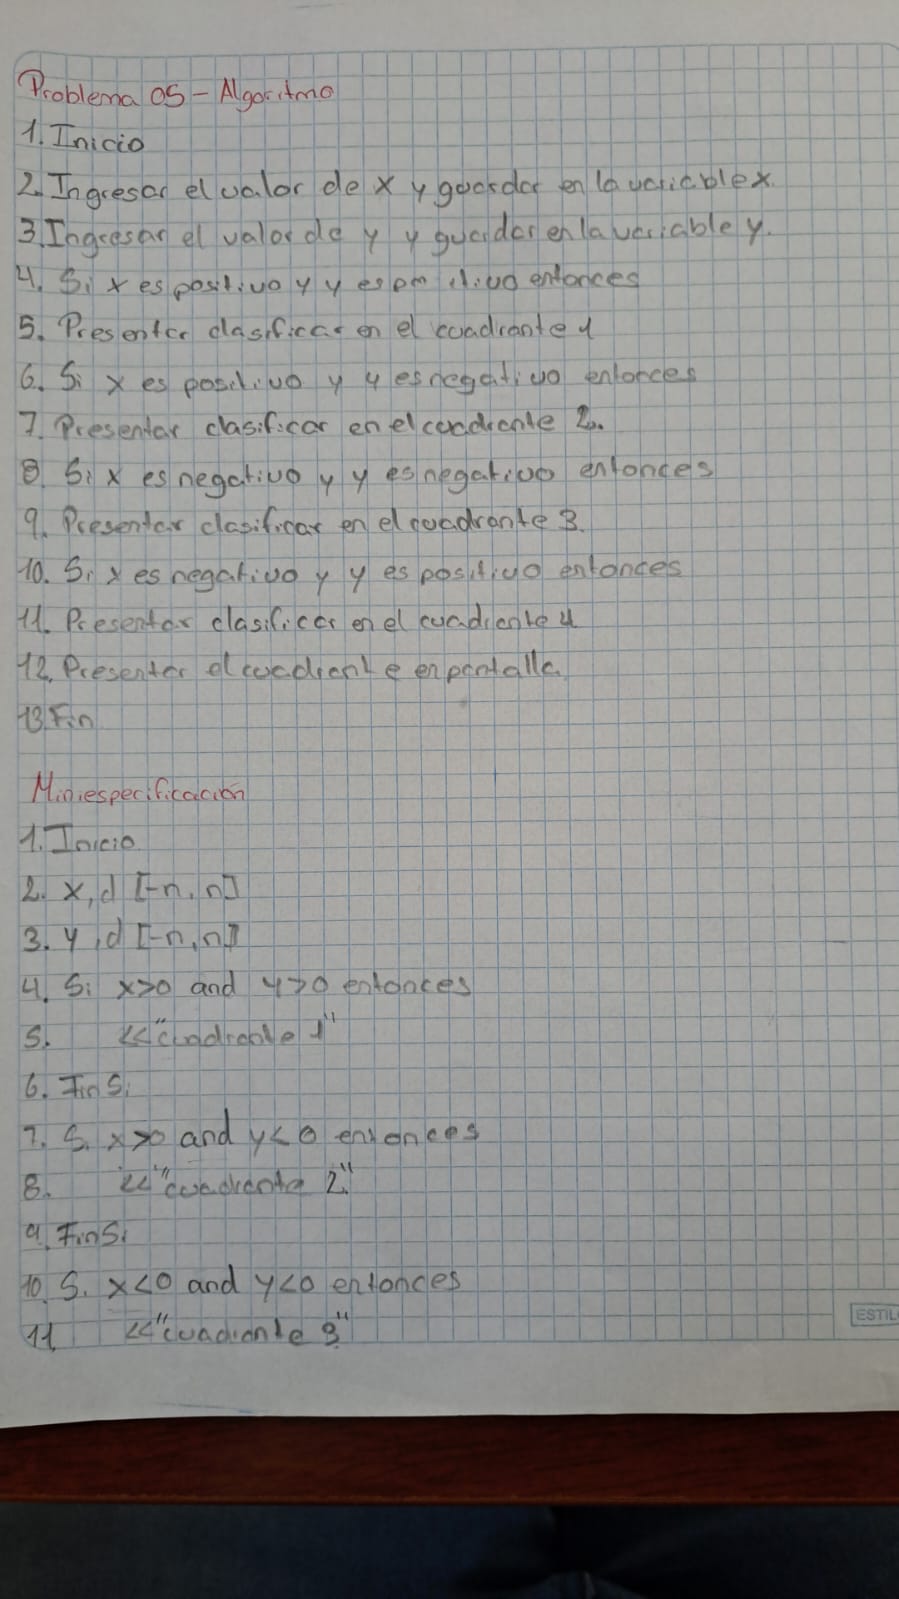 Problema 05 - Algoritmo
1. Inicio
2. Ingresar el valor de x y guardar en la variable x.
3. Ingresar el valor de y y guardar en la variable y.
4. Si x es positivo y y es positivo entonces
5. Presentar clasificar en el cuadrante 1
6. Si x es positivo y y es negativo entonces
7. Presentar clasificar en el cuadrante 2.
8. Si x es negativo y y es negativo entonces
9. Presentar clasificar en el cuadrante 3.
10. Si x es negativo y y es positivo entonces
11. Presentar clasificar en el cuadrante 4
12. Presentar el cuadrante en pantalla.
13. Fin
Miniespecificación
1. Inicio
2. x, d [-n, n]
3. y, d [-n, n]
4. Si x>0 and y>0 entonces
5. <<"cuadrante 1"
6. Fin Si
7. Si x>0 and y<0 entonces
8. <<"cuadrante 2."
9. Fin Si
10. Si x<0 and y<0 entonces
11 <<"cuadrante 3."
ESTIL